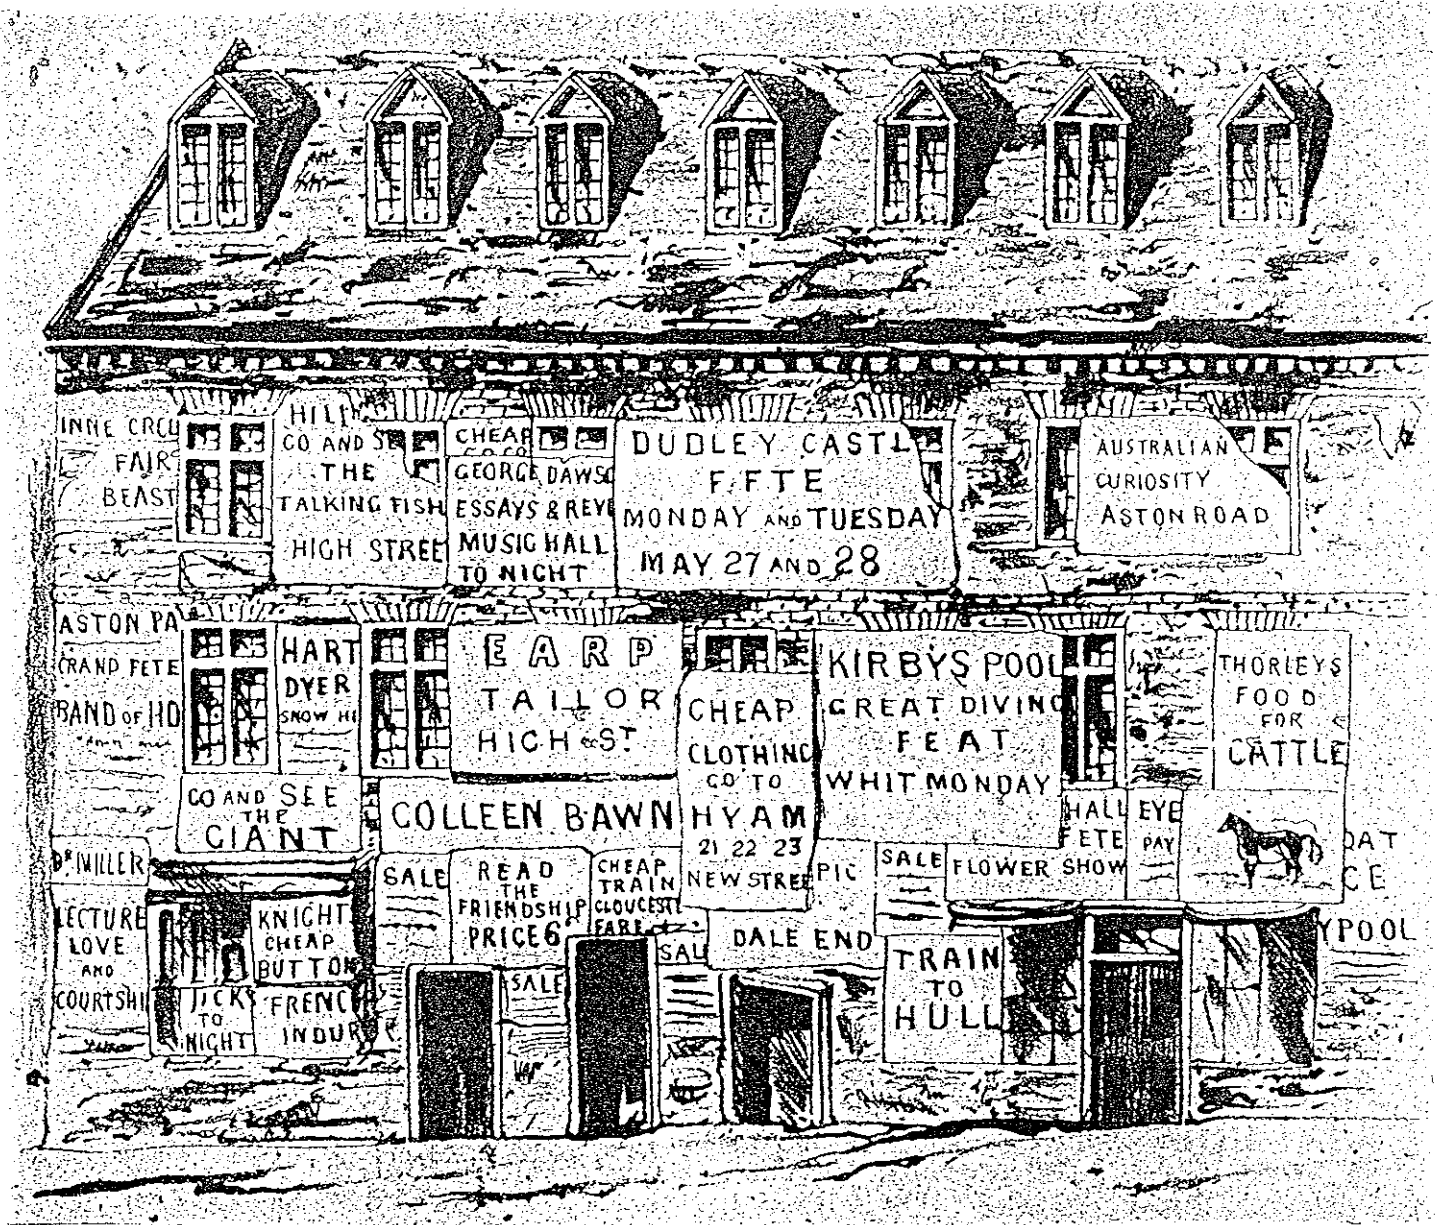 INNE CRCU
FAIR
BEAST
HILL
GO AND SE
THE
TALKING FISH
HIGH STREET
CHEAP
GEORGE DAWSO
ESSAYS & REVI
MUSIC HALL
TO NIGHT
DUDLEY CASTL
FETE
MONDAY AND TUESDAY
MAY 27 AND 28
AUSTRALIAN
CURIOSITY
ASTON ROAD
ASTON PA
GRAND FETE
BAND OF HO
HART
DYER
SNOW HI
EARP
TAILOR
HIGH ST
CHEAP
CLOTHING
GO TO
HYAM
21 22 23
NEW STREET
KIRBYS POOL
GREAT DIVING
FEAT
WHIT MONDAY
THORLEYS
FOOD
FOR
CATTLE
GO AND SEE
THE
GIANT
COLLEEN BAWN
HALL
FETE
FLOWER SHOW
EYE
PAY
OAT
CE
YPOOL
DR MILLER
LECTURE
LOVE
AND
COURTSHI
KNIGHT
CHEAP
BUTTON
JICK
TO
NIGHT
FRENCH
INDUR
SALE
READ
THE
FRIENDSHIP
PRICE 6
CHEAP
TRAIN
GLOUCESTE
FARE
SALE
SALE
PIC
DALE END
SALE
TRAIN
TO
HULL